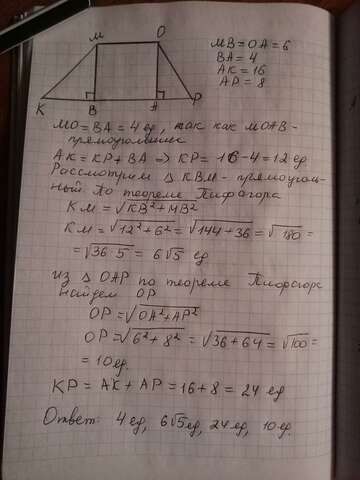 M O
K B A P
MB = OA = 6
BA = 4
AK = 16
AP = 8
MO = BA = 4 ед, так как MOAB -
прямоугольник
AK = KP + BA => KP = 16 - 4 = 12 ед
Рассмотрим Δ KBM - прямоуголь-
ный. По теореме Пифагора
KM = √KB² + MB²
KM = √12² + 6² = √144 + 36 = √180 =
= √36 · 5 = 6√5 ед
Из Δ OAP по теореме Пифагора
найдем OP
OP = √OA² + AP²
OP = √6² + 8² = √36 + 64 = √100 =
= 10 ед.
KP = AK + AP = 16 + 8 = 24 ед
Ответ: 4 ед, 6√5 ед, 24 ед, 10 ед.